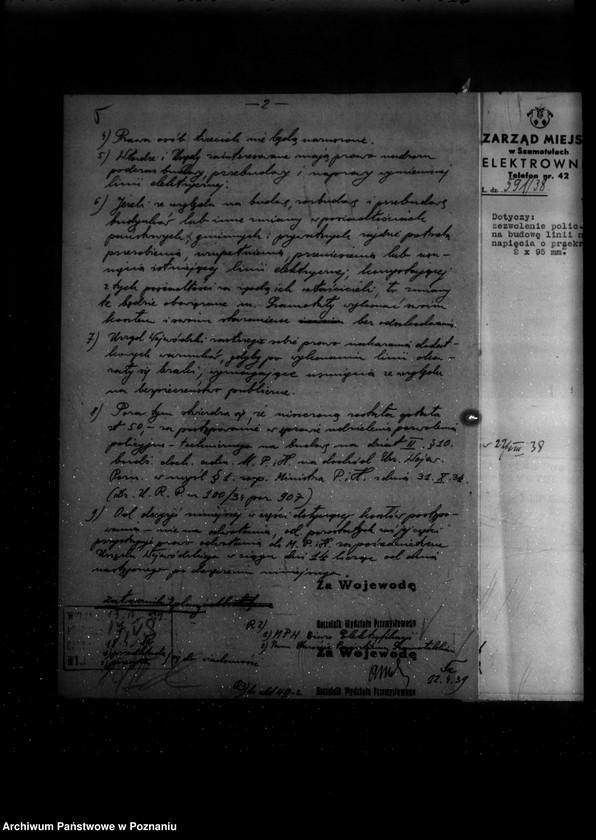 — 2 —
4) Prawa osób trzecich nie będą naruszone.
5) Władze i Urzędy zainteresowane mają prawo nadzoru
podczas budowy, przebudowy i naprawy wymienionej
linii elektrycznej.
6) Jeżeli ze względu na budowę, rozbudowę i przebudowę
budynków lub inne zmiany w posiadłościach
państwowych, gminnych i prywatnych zajdzie potrzeba
przerobienia, uzupełnienia, przeniesienia lub usu-
nięcia istniejącej linii elektrycznej, korzystającej
z tych posiadłości za zgodą ich właścicieli, to zmiany
te będzie obowiązane m. Szamotuły wykonać swoim
kosztem i swoim staraniem bez odszkodowania.
7) Urząd Wojewódzki zastrzega sobie prawo nakazania dodat-
kowych warunków, gdyby po wykonaniu linii oka-
zały się braki, wymagające usunięcia ze względu
na bezpieczeństwo publiczne.
8) Poza tym stwierdza się, że uiszczona została opłata
zł 50,- za postępowanie w sprawie udzielenia pozwolenia
policyjno-technicznego na budowę na dział II § 10.
budż. doch. adm. M. P. i H. na dochód Urz. Wojew.
Pozn. w myśl § 1. rozp. Ministra P. i H. z dnia 31. X. 34.
(Dz. U. R. P. nr 100/34 poz 907)
9) Od decyzji niniejszej w części dotyczącej kosztów postępo-
wania – nie ma odwołania, od pozostałych zaś jej części
przysługuje prawo odwołania do M. P. i H. za pośrednictwem
Urzędu Wojewódzkiego w ciągu dni 14 licząc od dnia
następnego po doręczeniu niniejszego.
Za Wojewodę
Naczelnik Wydziału Przemysłowego
2) MPH Biuro Elektryfikacji
Za Wojewodę
12.4.39
Naczelnik Wydziału Przemysłowego
ZARZĄD MIEJS
w Szamotułach
ELEKTROWN
Telefon nr. 42
L. dz. 591/38
Dotyczy:
zezwolenie polic.
na budowę linii n
napięcia o przekr
2 x 95 mm²
27/VIII 38
Archiwum Państwowe w Poznaniu